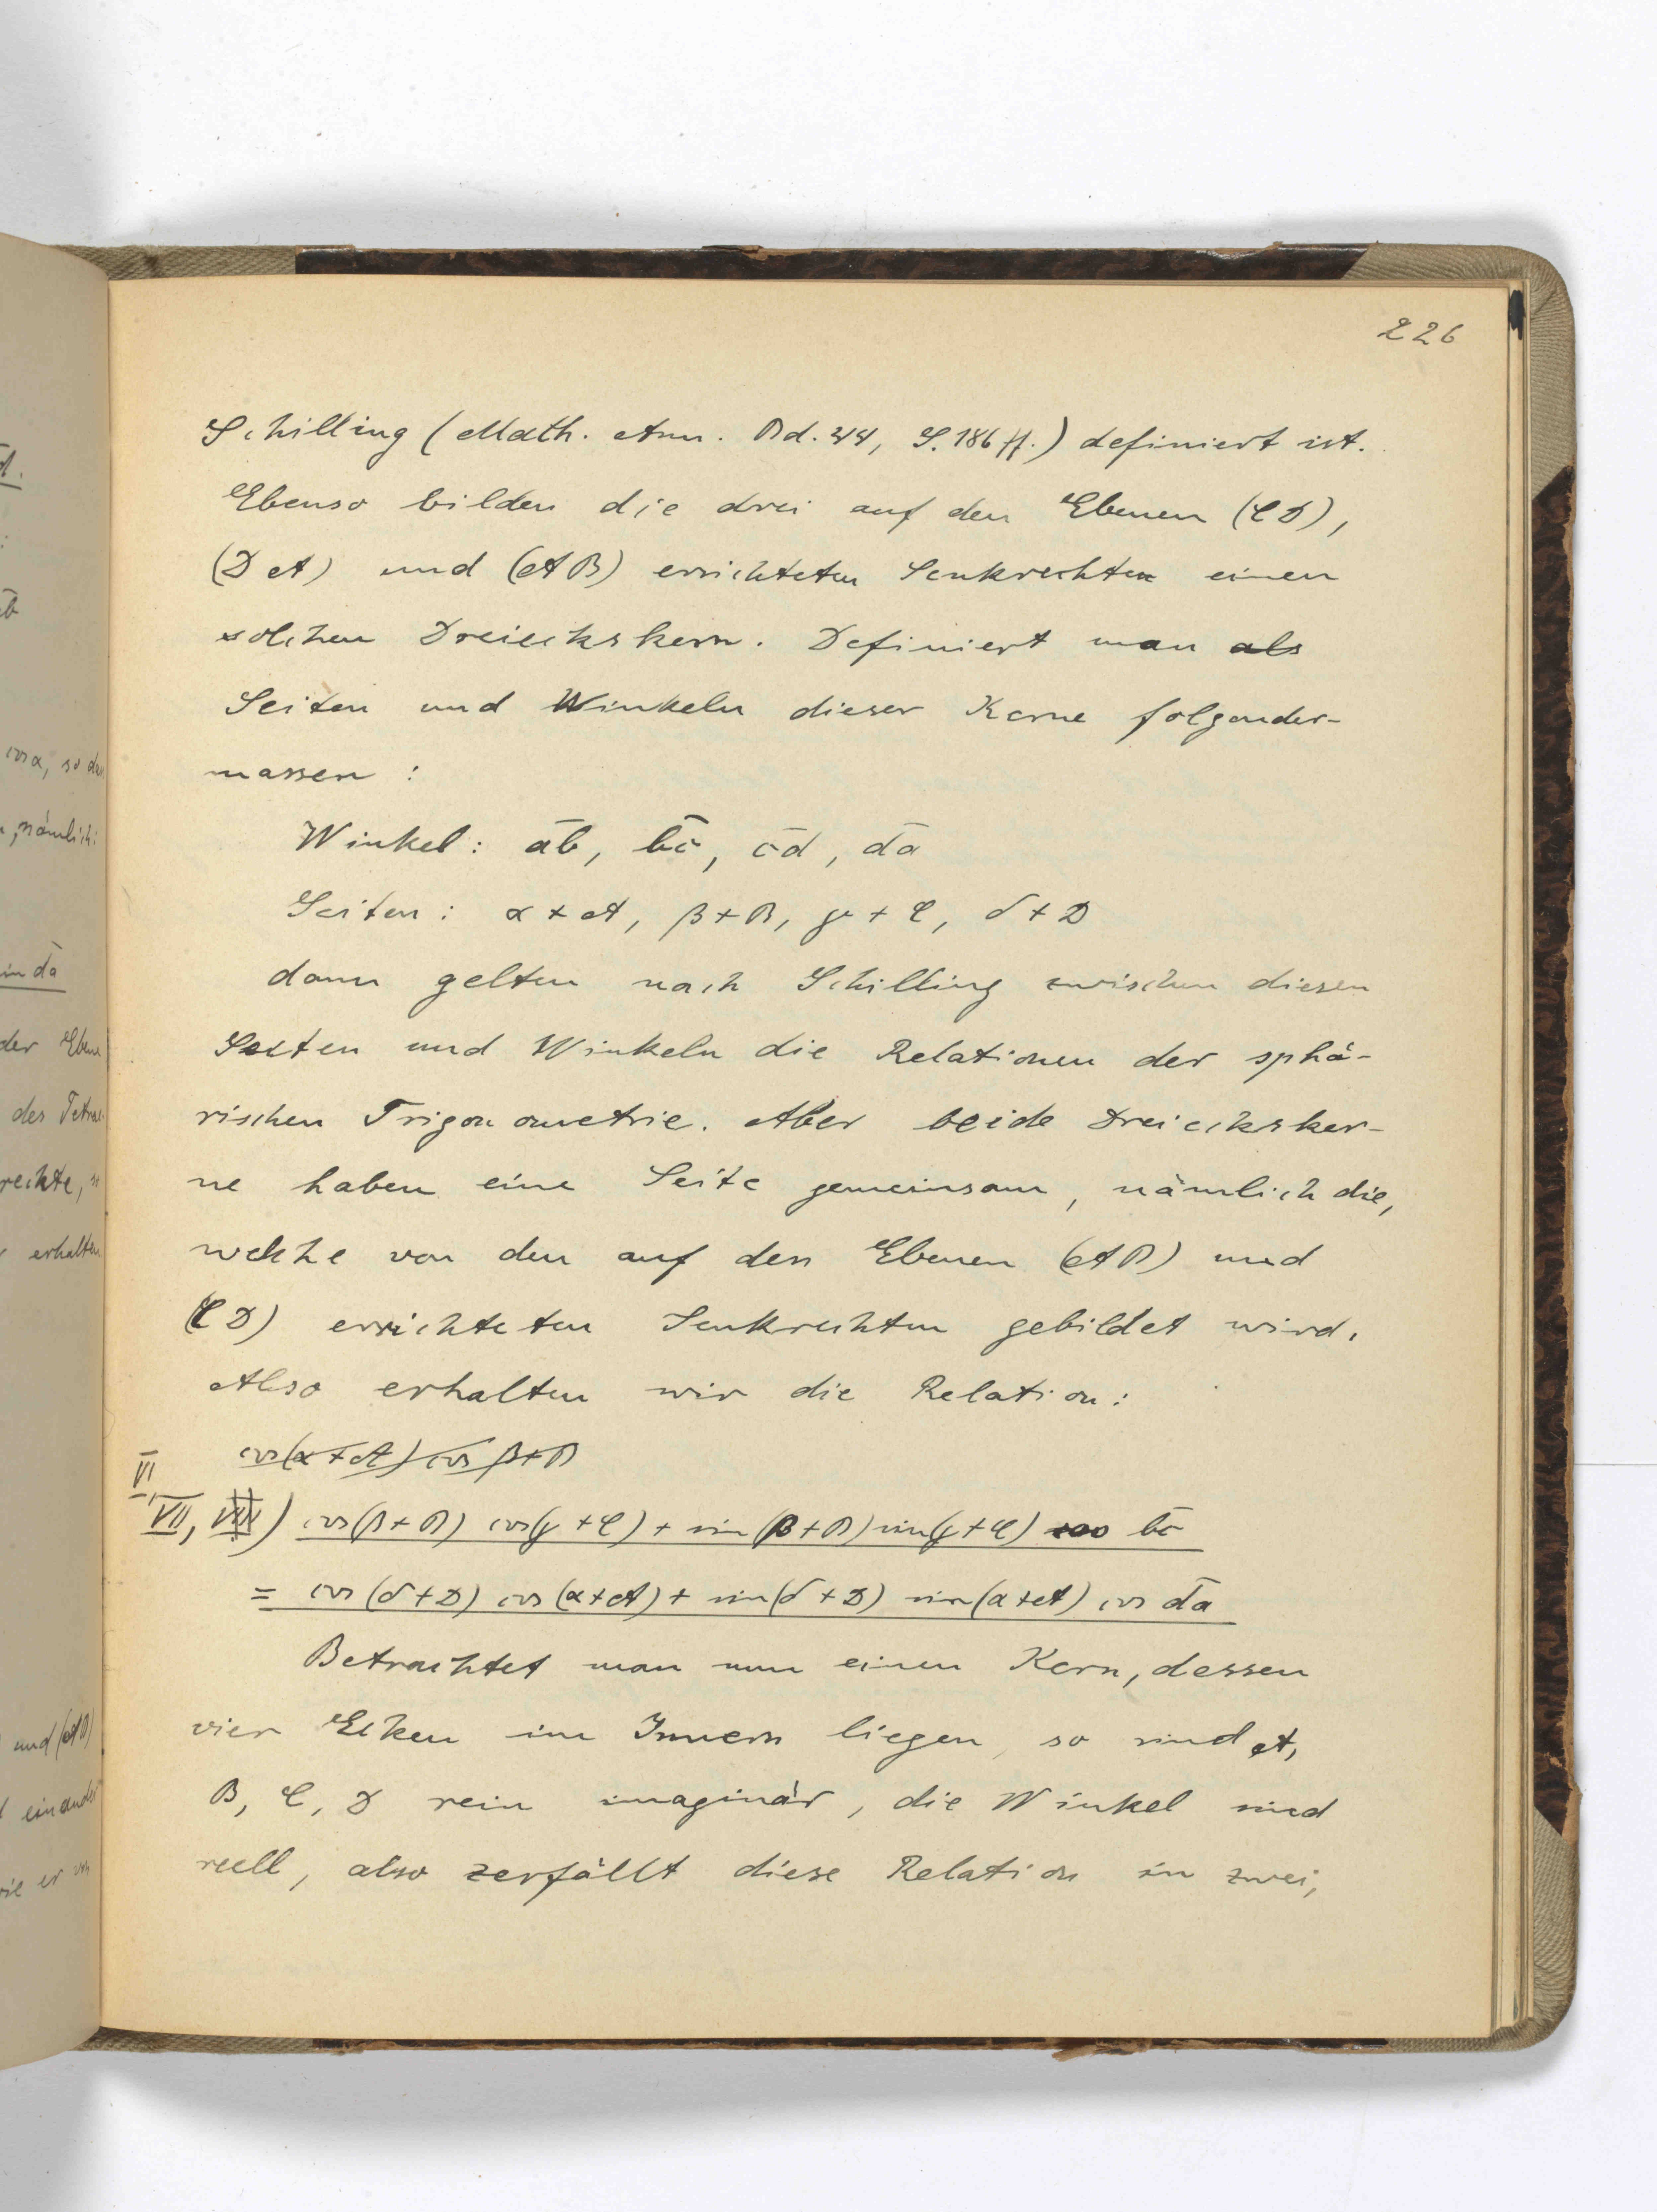 226
Schilling (Math. Ann. Bd. 44, S. 186 ff.) definiert ist.
Ebenso bilden die drei auf den Ebenen (CD),
(DA) und (AB) errichteten Senkrechten einen
solchen Dreieckskern. Definiert man als
Seiten und Winkeln dieser Kerne folgender-
massen :
Winkel : āb, b̄c, c̄d, d̄a
Seiten : α + A, β + B, γ + C, δ + D
dann gelten nach Schilling zwischen diesen
Seiten und Winkeln die Relationen der sphä-
rischen Trigonometrie. Aber beide Dreiecksker-
ne haben eine Seite gemeinsam, nämlich die,
welche von den auf den Ebenen (AB) und
(CD) errichteten Senkrechten gebildet wird.
Also erhalten wir die Relation :
cos(α + A) cos β + B
VI,
VII, VIII) cos(β + B) cos(γ + C) + sin(β + B) sin(γ + C) cos b̄c
= cos(δ + D) cos(α + A) + sin(δ + D) sin(α + A) cos d̄a
Betrachtet man nun einen Kern, dessen
vier Ecken im Innern liegen, so sind A,
B, C, D rein imaginär, die Winkel sind
reell, also zerfällt diese Relation in zwei,
cos α, so das
nämlich:
in d̄a
der Ebene
des Tetrae-
rechte, so
erhalten
und (AB)
einander
wie er von